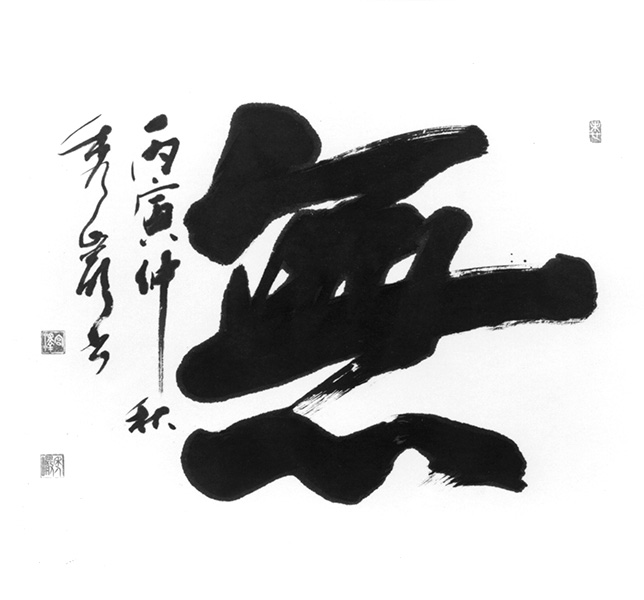 無
丙寅仲秋
秀巖書